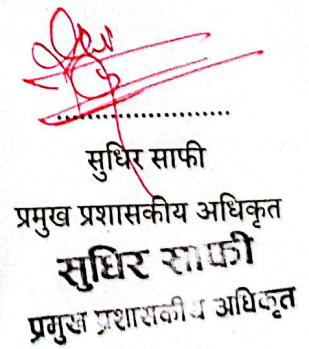 ....................
सुधिर साफी
प्रमुख प्रशासकीय अधिकृत
सुधिर साफी
प्रमुख प्रशासकीय अधिकृत